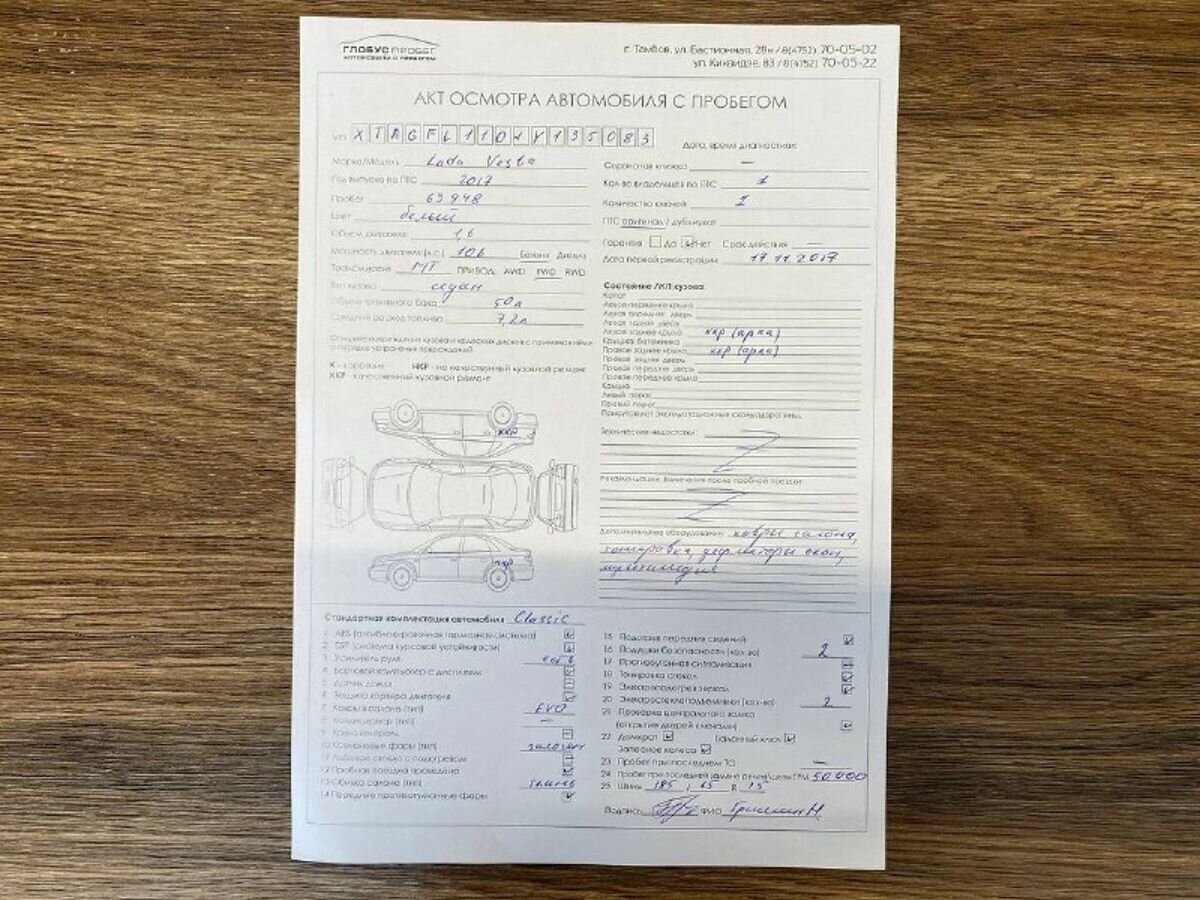 ГЛОБУС ПРОБЕГ
АВТОМОБИЛИ С ПРОБЕГОМ
г. Тамбов, ул. Бастионная, 28н / 8(4752) 70-05-02
ул. Киквидзе, 83 / 8(4752) 70-05-22
АКТ ОСМОТРА АВТОМОБИЛЯ С ПРОБЕГОМ
XTAGFL110JY135083
Дата, время диагностики:
Марка/Модель Lada Vesta
Год выпуска по ПТС 2017
Пробег 63 948
Цвет белый
Объем двигателя 1,6
Мощность двигателя (л.с.) 106 Бензин Дизель
Трансмиссия МТ ПРИВОД: AWD FWD RWD
Тип кузова седан
Объем топливного бака 50л
Средний расход топлива 7,2л
Сервисная книжка —
Кол-во владельцев по ПТС 1
Количество ключей 1
ПТС оригинал / дубликат
Гарантия Да Нет Срок действия —
Дата первой регистрации 17.11.2017
К - коррозия НКР - не качественный кузовной ремонт
ККР - качественный кузовной ремонт
ккр
ккр
Состояние ЛКП кузова:
Капот
Левое переднее крыло
Левая передняя дверь
Левая задняя дверь
Левое заднее крыло ккр (арка)
Крышка багажника
Правое заднее крыло ккр (арка)
Правая задняя дверь
Правая передняя дверь
Правое переднее крыло
Крыша
Левый порог
Правый порог
Присутствуют эксплуатационные сколы/царапины.
Технические недостатки:
Рекомендации, замечания после пробной поездки:
Дополнительное оборудование: ковры салона,
тонировка, дефлекторы окон,
мультимедия
Стандартная комплектация автомобиля Classic
1 ABS (антиблокировочная тормозная система)
2 ESP (система курсовой устойчивости)
3 Усилитель руля
4 Бортовой компьютер с дисплеем
5 Датчик дождя
6 Защита картера двигателя
7 Ковры в салоне (тип) EVO
8 Кондиционер (тип) —
9 Круиз-контроль
10 Ксеноновые фары (тип) галоген
11 Лобовое стекло с подогревом
12 Пробная поездка проведена
13 Обивка салона (тип) ткань
14 Передние противотуманные фары
15 Подогрев передних сидений
16 Подушки безопасности (кол-во) 2
17 Противоугонная сигнализация
18 Тонировка стекол
19 Электроподогрев зеркал
20 Электростеклоподъемники (кол-во) 2
21 Проверка центрального замка
(открытие дверей ключами)
22 Домкрат Балонный ключ
Запасное колесо
23 Пробег при последнем ТО —
24 Пробег при последней замене ремня/цепи ГРМ 50.000
25 Шины 185 / 65 R 15
Подпись ФИО